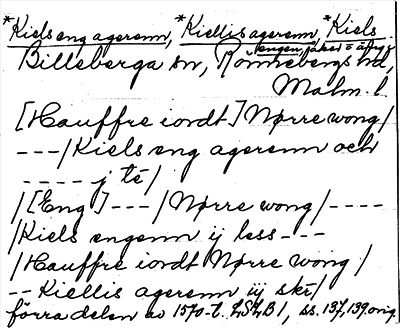 *Kiels eng agerenn, *Kiellis agerenn, *Kiels
engen, åker o äng,
Billeberga sn, Rönnebergs hd,
Malm. l.
[Hauffre iordt] Nørre wong/
---/Kiels eng agerenn och
---- j te/
/[Eng]---/Nørre wong/----
/Kiels engenn ij less---
/Hauffre iordt Nørre wong/
-- Kiellis agerenn iij skr/
förra delen av 1570-t. LSLB1, ss. 137, 139, orig.